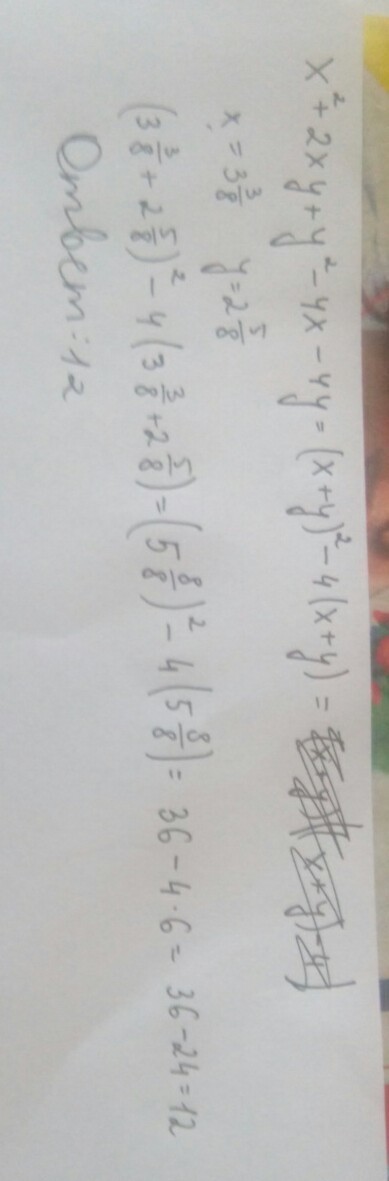 x² + 2xy + y² - 4x - 4y = (x+y)² - 4(x+y) = (x+y)((x+y)-4)
x = 3 3/8 y = 2 5/8
(3 3/8 + 2 5/8)² - 4(3 3/8 + 2 5/8) = (5 8/8)² - 4(5 8/8) = 36 - 4·6 = 36 - 24 = 12
Ответ: 12